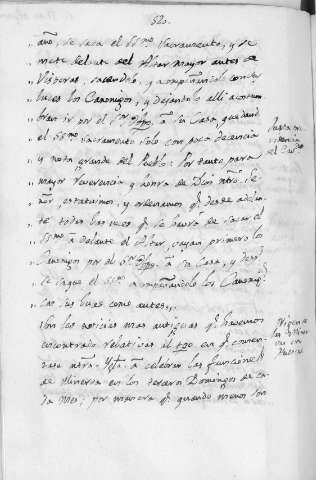 520.
año, se saca el SSmo. Sacramento, y se
mete delante del Altar mayor antes de
Visperas, sacandolo, y acompañandolo con las
luces los Canonigos; y dejandolo alli acostum
bran ir por el Sr. Obpo. a su Casa, quedando
el SSmo. Sacramento solo con poca decencia
y nota grande del Pueblo: Por tanto para
mayor Reverencia y honra de Dios ntro. Se
ñor, estatuimos, y ordenamos q. desde adelan
te todas las veces q. se hará de sacar el
SSmo. a delante el Altar vayan primero los
Canonigos por el Sr. Obpo. a su Casa, y desp.
se saque el SSmo. acompañandolo los Canonig.
con las luces como antes.
Son las noticias mas antiguas q. havemos
encontrado relativas al tpo. en q. comen
zase ntra. Ygla. a celebrar las funciones
de Minerva en los terceros Domingos de ca
da Mes; por manera q. quando menos son